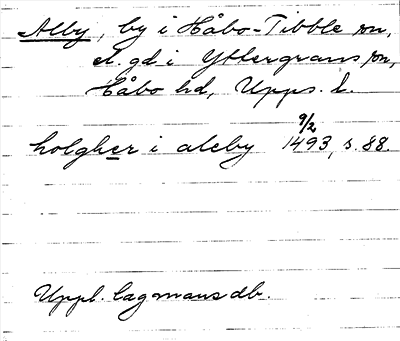 Alby, by i Håbo-Tibble sn,
el. gd i Yttergrans sn,
Håbo hd, Upps. l.
9/2
holgher i aleby 1493, s. 88.
Uppl. lagmansdb.